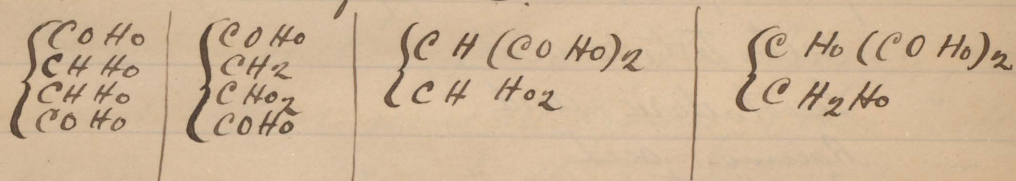 COHo
CHHo
CHHo
COHo
COHo
CH2
CHo2
COHo
CH(COHo)2
CH Ho2
CHo(COHo)2
CH2Ho